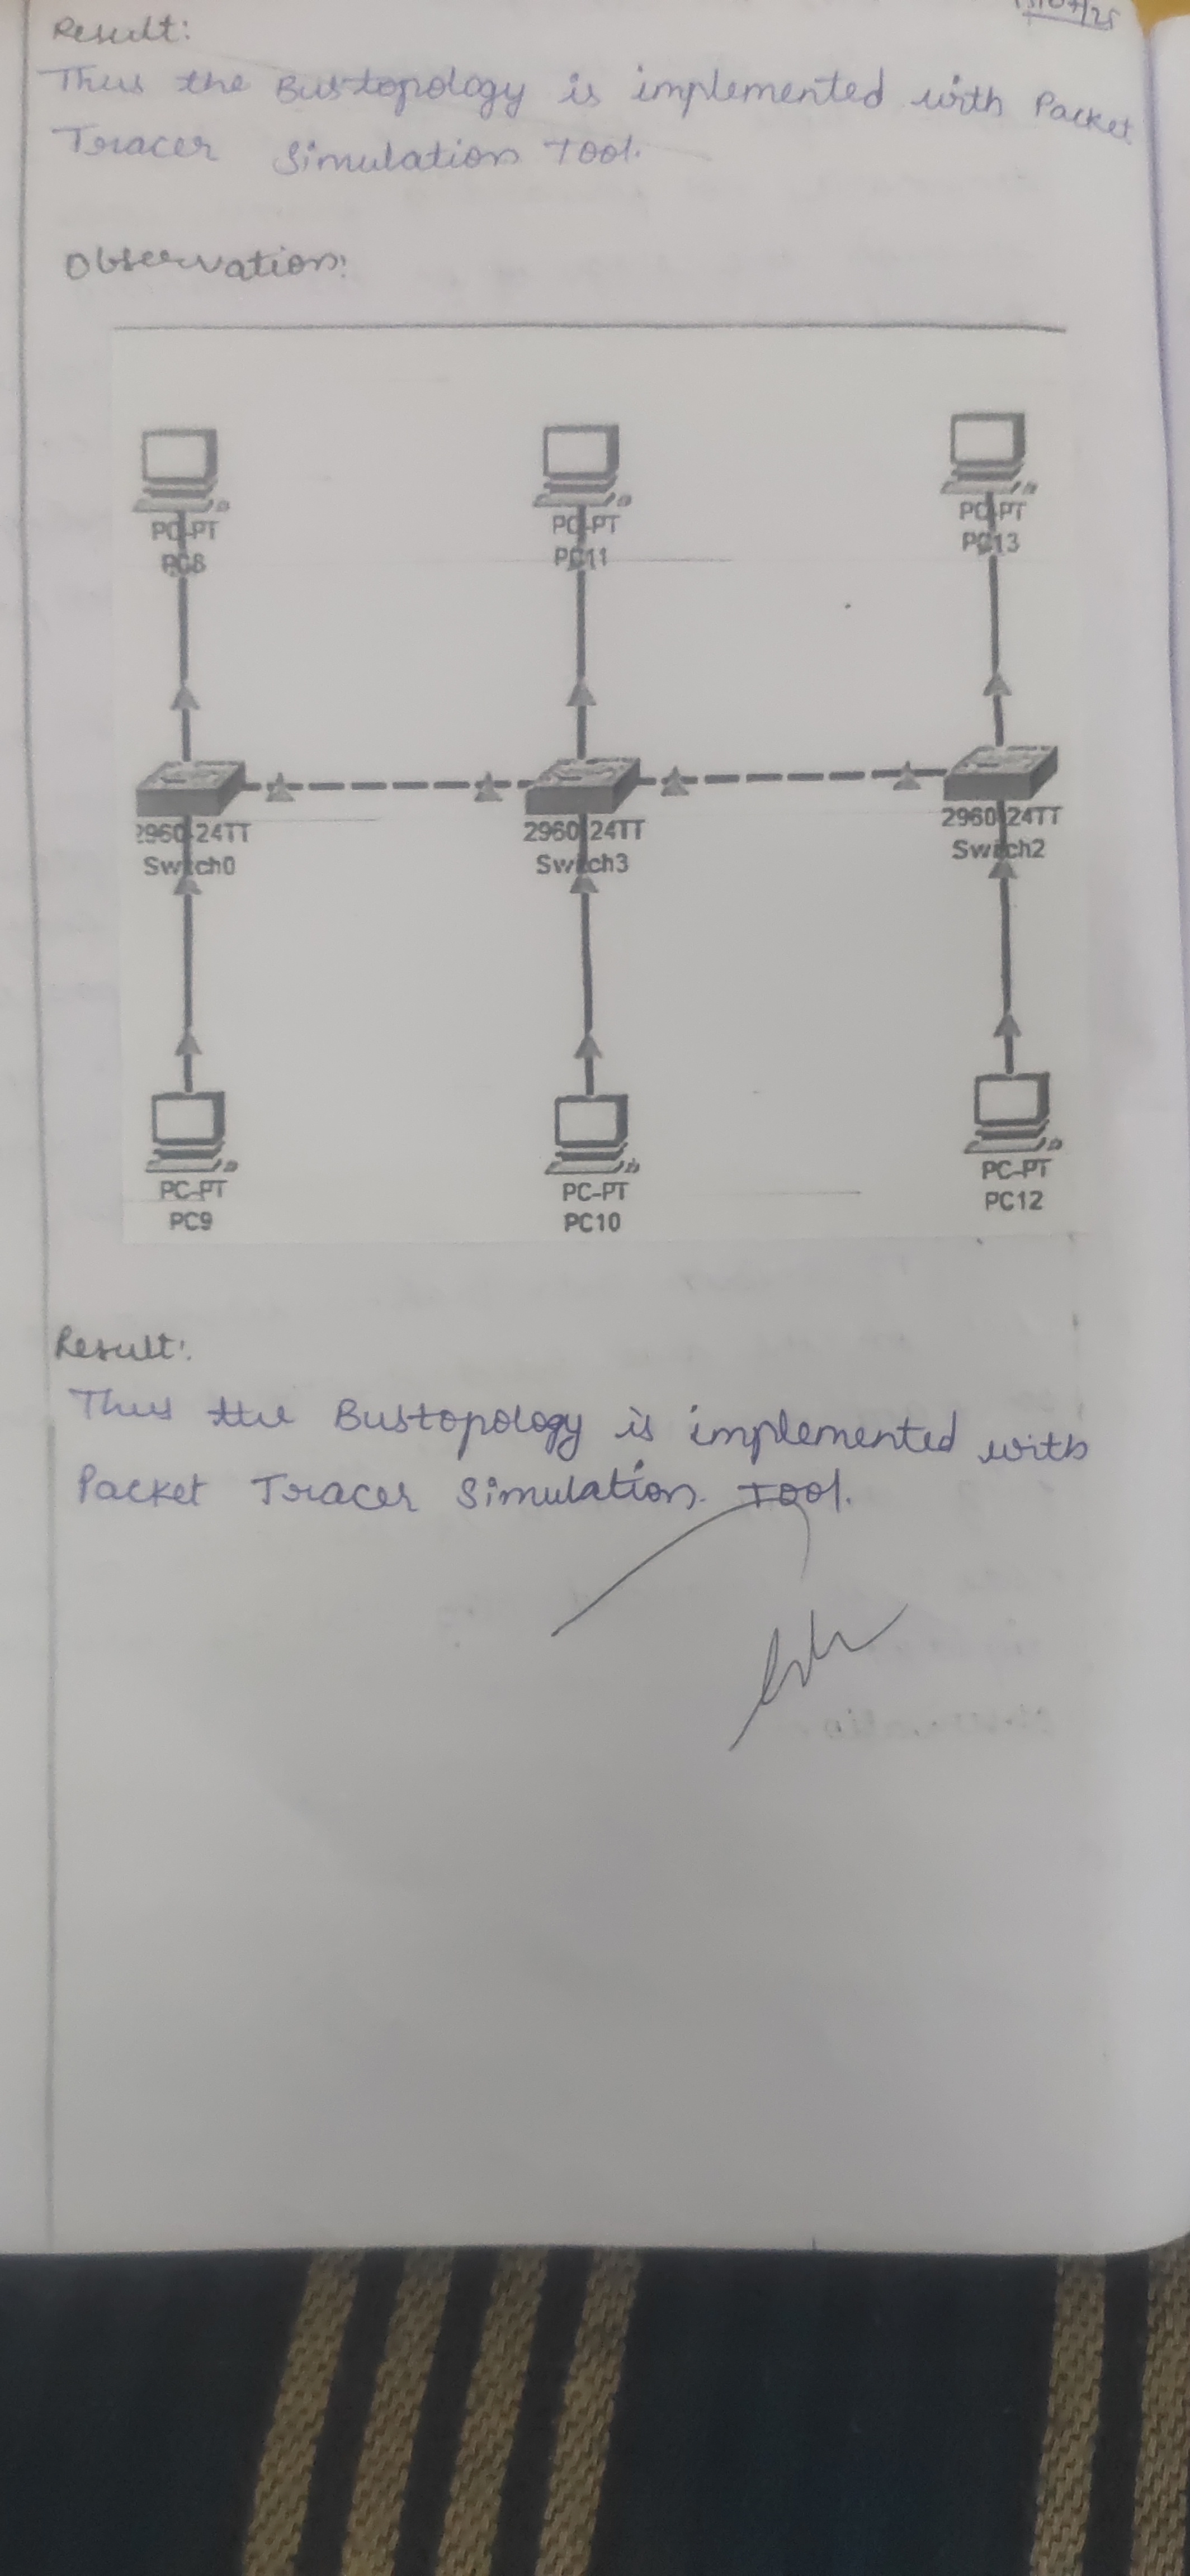 Result:
Thus the Bustopology is implemented with Packet
Tracer Simulation Tool.
Observation:
PC-PT PC-PT PC-PT
PC8 PC11 PC13
2960-24TT 2960-24TT 2960-24TT
Switch0 Switch3 Switch2
PC-PT PC-PT PC-PT
PC9 PC10 PC12
Result:
Thus the Bustopology is implemented with
Packet Tracer Simulation. Tool.